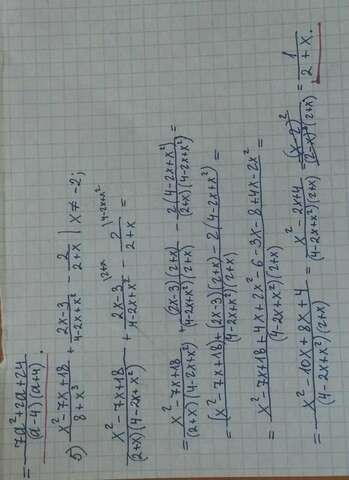 = 7a²+2a+24 / (a-4)(a+4).
5) x²-7x+18 / 8+x³ + 2x-3 / 4-2x+x² - 2 / 2+x | x ≠ -2;
x²-7x+18 / (2+x)(4-2x+x²) + 2x-3 / 4-2x+x² \2+x - 2 / 2+x \4-2x+x² =
= x²-7x+18 / (2+x)(4-2x+x²) + (2x-3)(2+x) / (4-2x+x²)(2+x) - 2(4-2x+x²) / (2+x)(4-2x+x²) =
= (x²-7x+18)+(2x-3)(2+x)-2(4-2x+x²) / (4-2x+x²)(2+x) =
= x²-7x+18+4x+2x²-6-3x-8+4x-2x² / (4-2x+x²)(2+x) =
= x²-10x+8x+4 / (4-2x+x²)(2+x) = x²-2x+4 / (4-2x+x²)(2+x) = (x-2)² / (2-x)²(2+x) = 1 / 2+x.